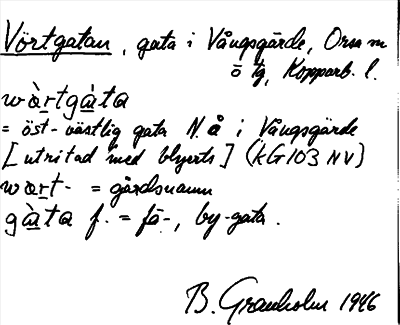 Vörtgatan, gata i Vångsgärde, Orsa sn
ö tg, Kopparb. l.
wàrtgàta
= öst-västlig gata N. å i Vångsgärde
[utritad med blyerts] (KG 103 NV)
wart- = gårdsnamn
gàta f. = fä-, by-gata.
B. Granholm 1946